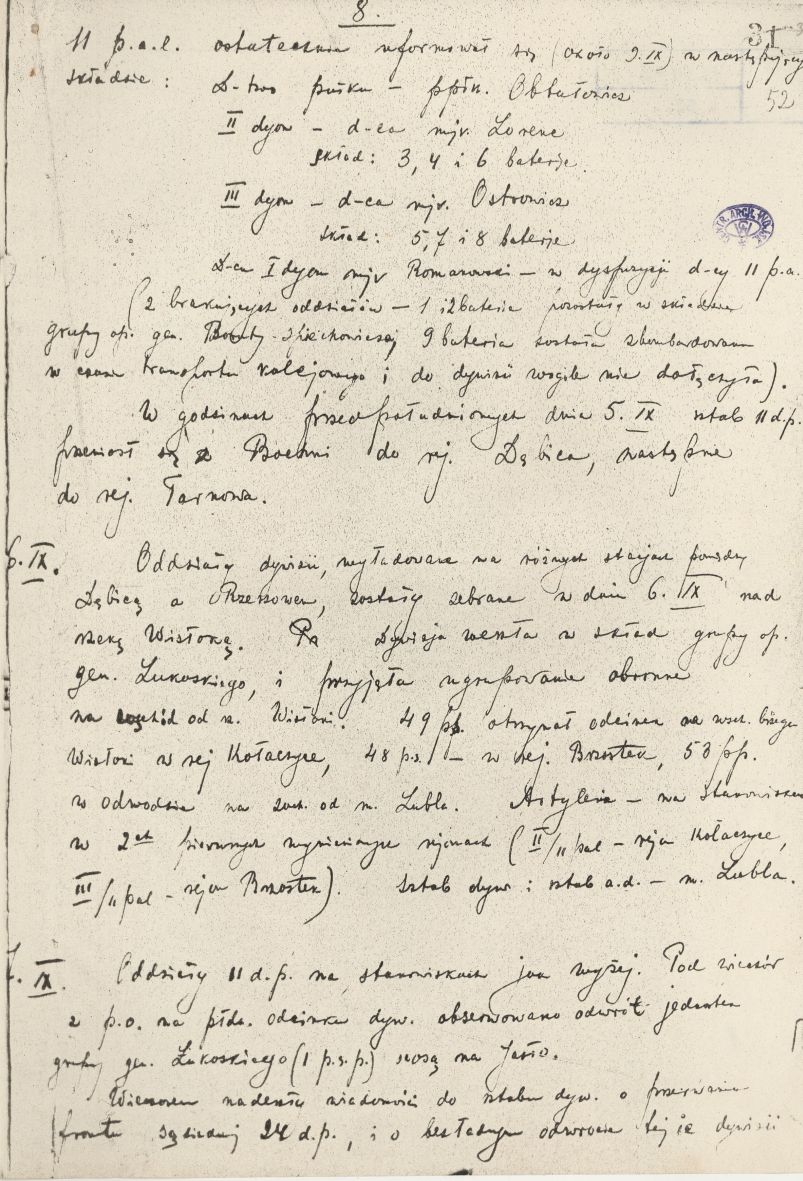 8.
31
52
11 p.a.l. ostatecznie uformował się (około 9.IX) w następującym
składzie: D-two pułku – ppłk. Obtułowicz
II dyon – d-ca mjr. Lorenc
skład: 3, 4 i 6 baterje
III dyon – d-ca mjr. Ostrowicz
skład: 5, 7 i 8 baterje
D-ca I dyonu mjr Romanowski – w dyspozycji d-cy 11 p.a.
(z brakujących oddziałów – 1 i 2 bateria pozostały w składzie
grupy op. gen. Boruty-Spiechowicza, 9 bateria została zbombardowana
w czasie transportu kolejowego i do dywizji wogóle nie dołączyła).
W godzinach przedpołudniowych dnia 5.IX sztab 11 d.p.
przeniósł się z Bochni do rej. Dębica, następnie
do rej. Tarnowa.
6.IX. Oddziały dywizji, wyładowane na różnych stacjach pomiędzy
Dębicą a Rzeszowem, zostały zebrane w dniu 6.IX nad
rzeką Wisłoką. Dywizja weszła w skład grupy op.
gen. Łukoskiego, i przyjęła ugrupowanie obronne
na wschód od rz. Wisłoki. 49 pp. otrzymał odcinek na wsch. brzegu
Wisłoki w rej Kołaczyce, 48 p.p. – w rej. Brzostek, 53 pp.
w odwodzie na zach. od m. Lubla. Artyleria – na stanowiskach
w 2ch pierwszych wymienionych rejonach (II/11 pal – rejon Kołaczyce,
III/11 pal – rejon Brzostek). Sztab dyw. i sztab a.d. – m. Lubla.
7.IX. Oddziały 11 d.p. na stanowiskach jak wyżej. Pod wieczór
z p.o. na płdn. odcinku dyw. obserwowano odwrót jednostek
grupy gen. Łukoskiego (1 p.s.p.) szosą na Jasło.
Wieczorem nadeszły wiadomości do sztabu dyw. o przerwaniu
frontu sąsiedniej 24 d.p., i o bezładnym odwrocie tejże dywizji